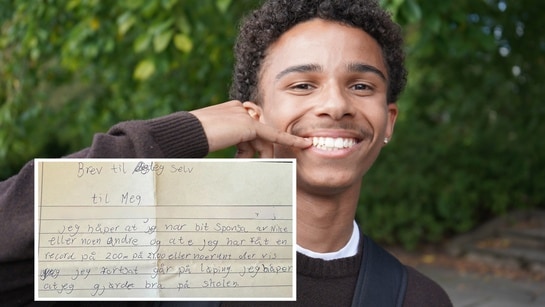 Brev til deg selv
til Meg
jeg håper at jeg har bit Sponsa av Nike
eller noen Andre og ate jeg har fåt en
record på 200m på 21,00 eller noerunt der vis
jeg fortsat går på løping jeg håper
atjeg gjørde bra på skolen